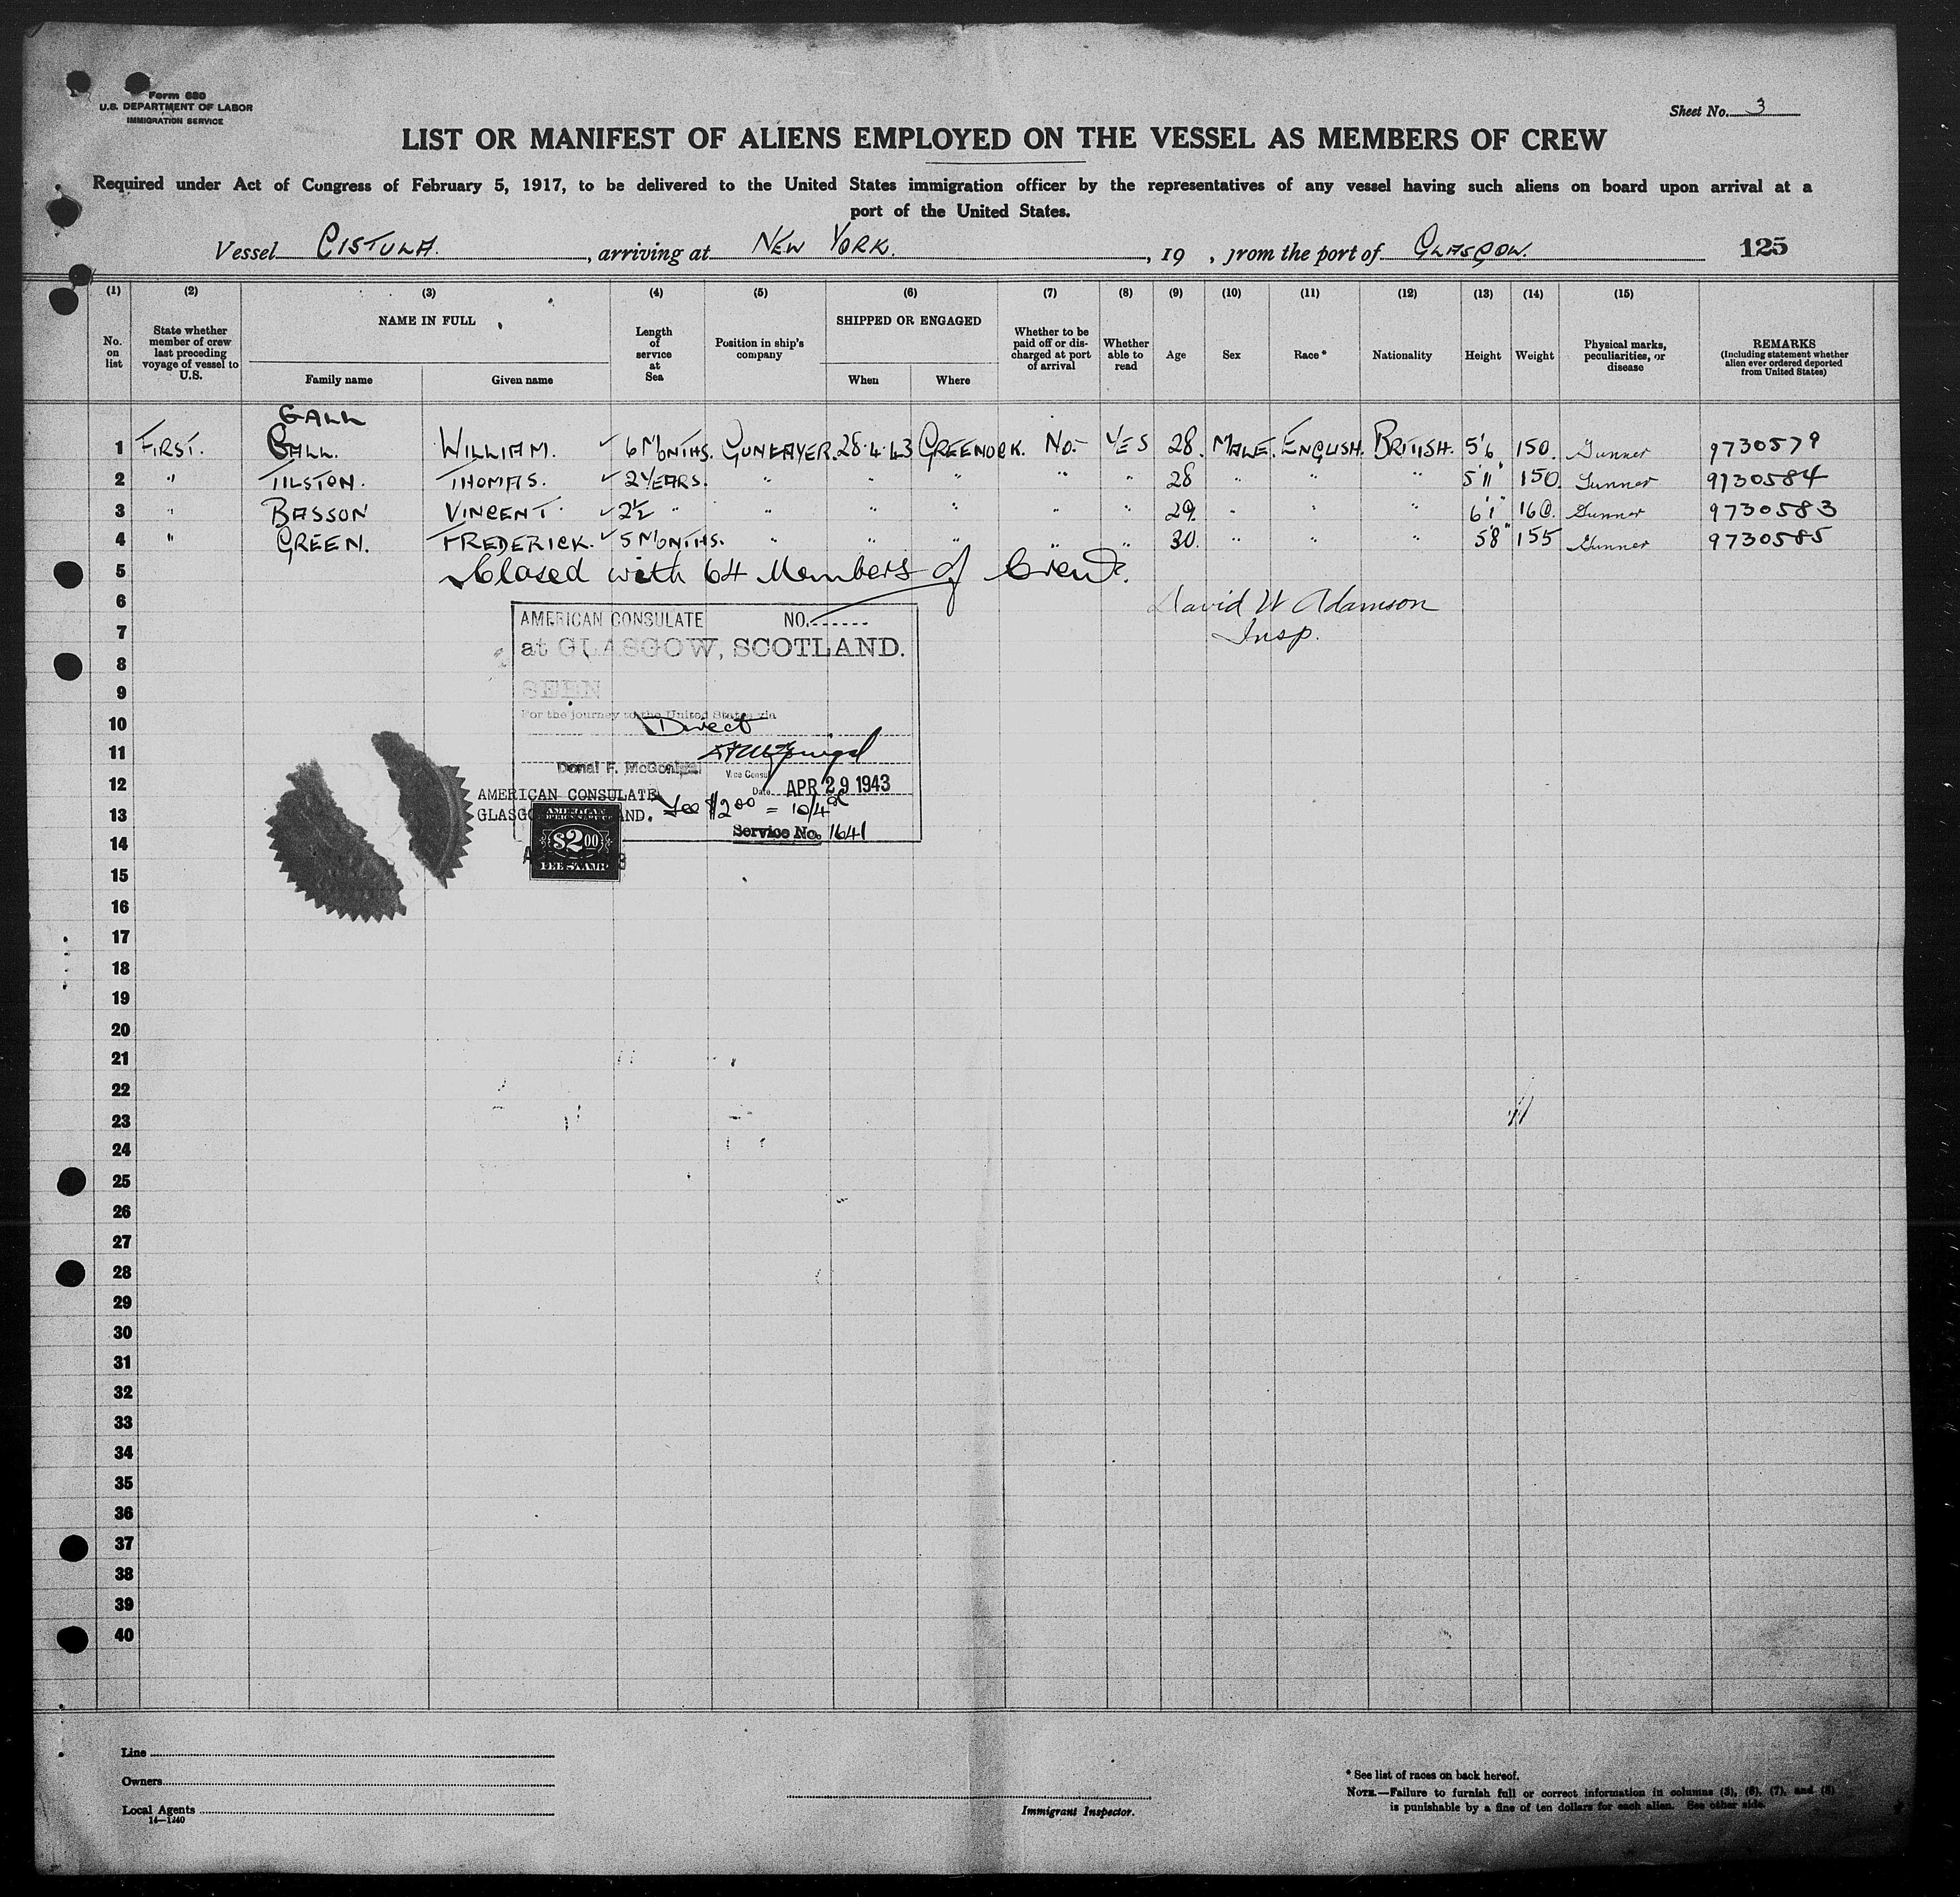 Form 680
U.S. DEPARTMENT OF LABOR
IMMIGRATION SERVICE
Sheet No. 3
LIST OR MANIFEST OF ALIENS EMPLOYED ON THE VESSEL AS MEMBERS OF CREW
Required under Act of Congress of February 5, 1917, to be delivered to the United States immigration officer by the representatives of any vessel having such aliens on board upon arrival at a
port of the United States.
Vessel CISTULA. , arriving at NEW YORK. , 19 , from the port of GLASGOW. 125
(1) (2) (3) (4) (5) (6) (7) (8) (9) (10) (11) (12) (13) (14) (15)
No. on list
State whether member of crew last preceding voyage of vessel to U.S.
NAME IN FULL
Family name
Given name
Length of service at Sea
Position in ship's company
SHIPPED OR ENGAGED
When
Where
Whether to be paid off or discharged at port of arrival
Whether able to read
Age
Sex
Race*
Nationality
Height
Weight
Physical marks, peculiarities, or disease
REMARKS
(Including statement whether alien ever ordered deported from United States)
GALL
1 FIRST. GALL. WILLIAM. ✓ 6 MONTHS. GUNLAYER. 28.4.43 GREENOCK. No.- YES 28. MALE. ENGLISH. BRITISH. 5'6 150. Gunner 9730579
2 " TILSTON. THOMAS. ✓ 2 YEARS. " " " " " 28 " " " 5'11" 150. Gunner 9730584
3 " BASSON VINCENT. ✓ 2½ " " " " " " 29. " " " 6'1" 160. Gunner 9730583
4 " GREEN. FREDERICK. ✓ 5 MONTHS. " " " " " 30. " " " 5'8" 155 Gunner 9730585
5 Closed with 64 Members of Crew.
6 David W Adamson
Insp.
7
8
9
10
11
12
13
14
15
16
17
18
19
20
21
22
23
24
25
26
27
28
29
30
31
32
33
34
35
36
37
38
39
40
AMERICAN CONSULATE NO.
at GLASGOW, SCOTLAND.
SEEN
For the journey to the United States via
Direct
Donal F. McGonigal
Vice Consul
Date APR 29 1943
AMERICAN CONSULATE
Fee $2.00 = 10/4
Service No. 1641
AMERICAN
$2.00
FEE STAMP
Line
Owners
Local Agents
14—1240
Immigrant Inspector.
* See list of races on back hereof.
NOTE.—Failure to furnish full or correct information in columns (3), (6), (7), and (8)
is punishable by a fine of ten dollars for each alien. See other side.